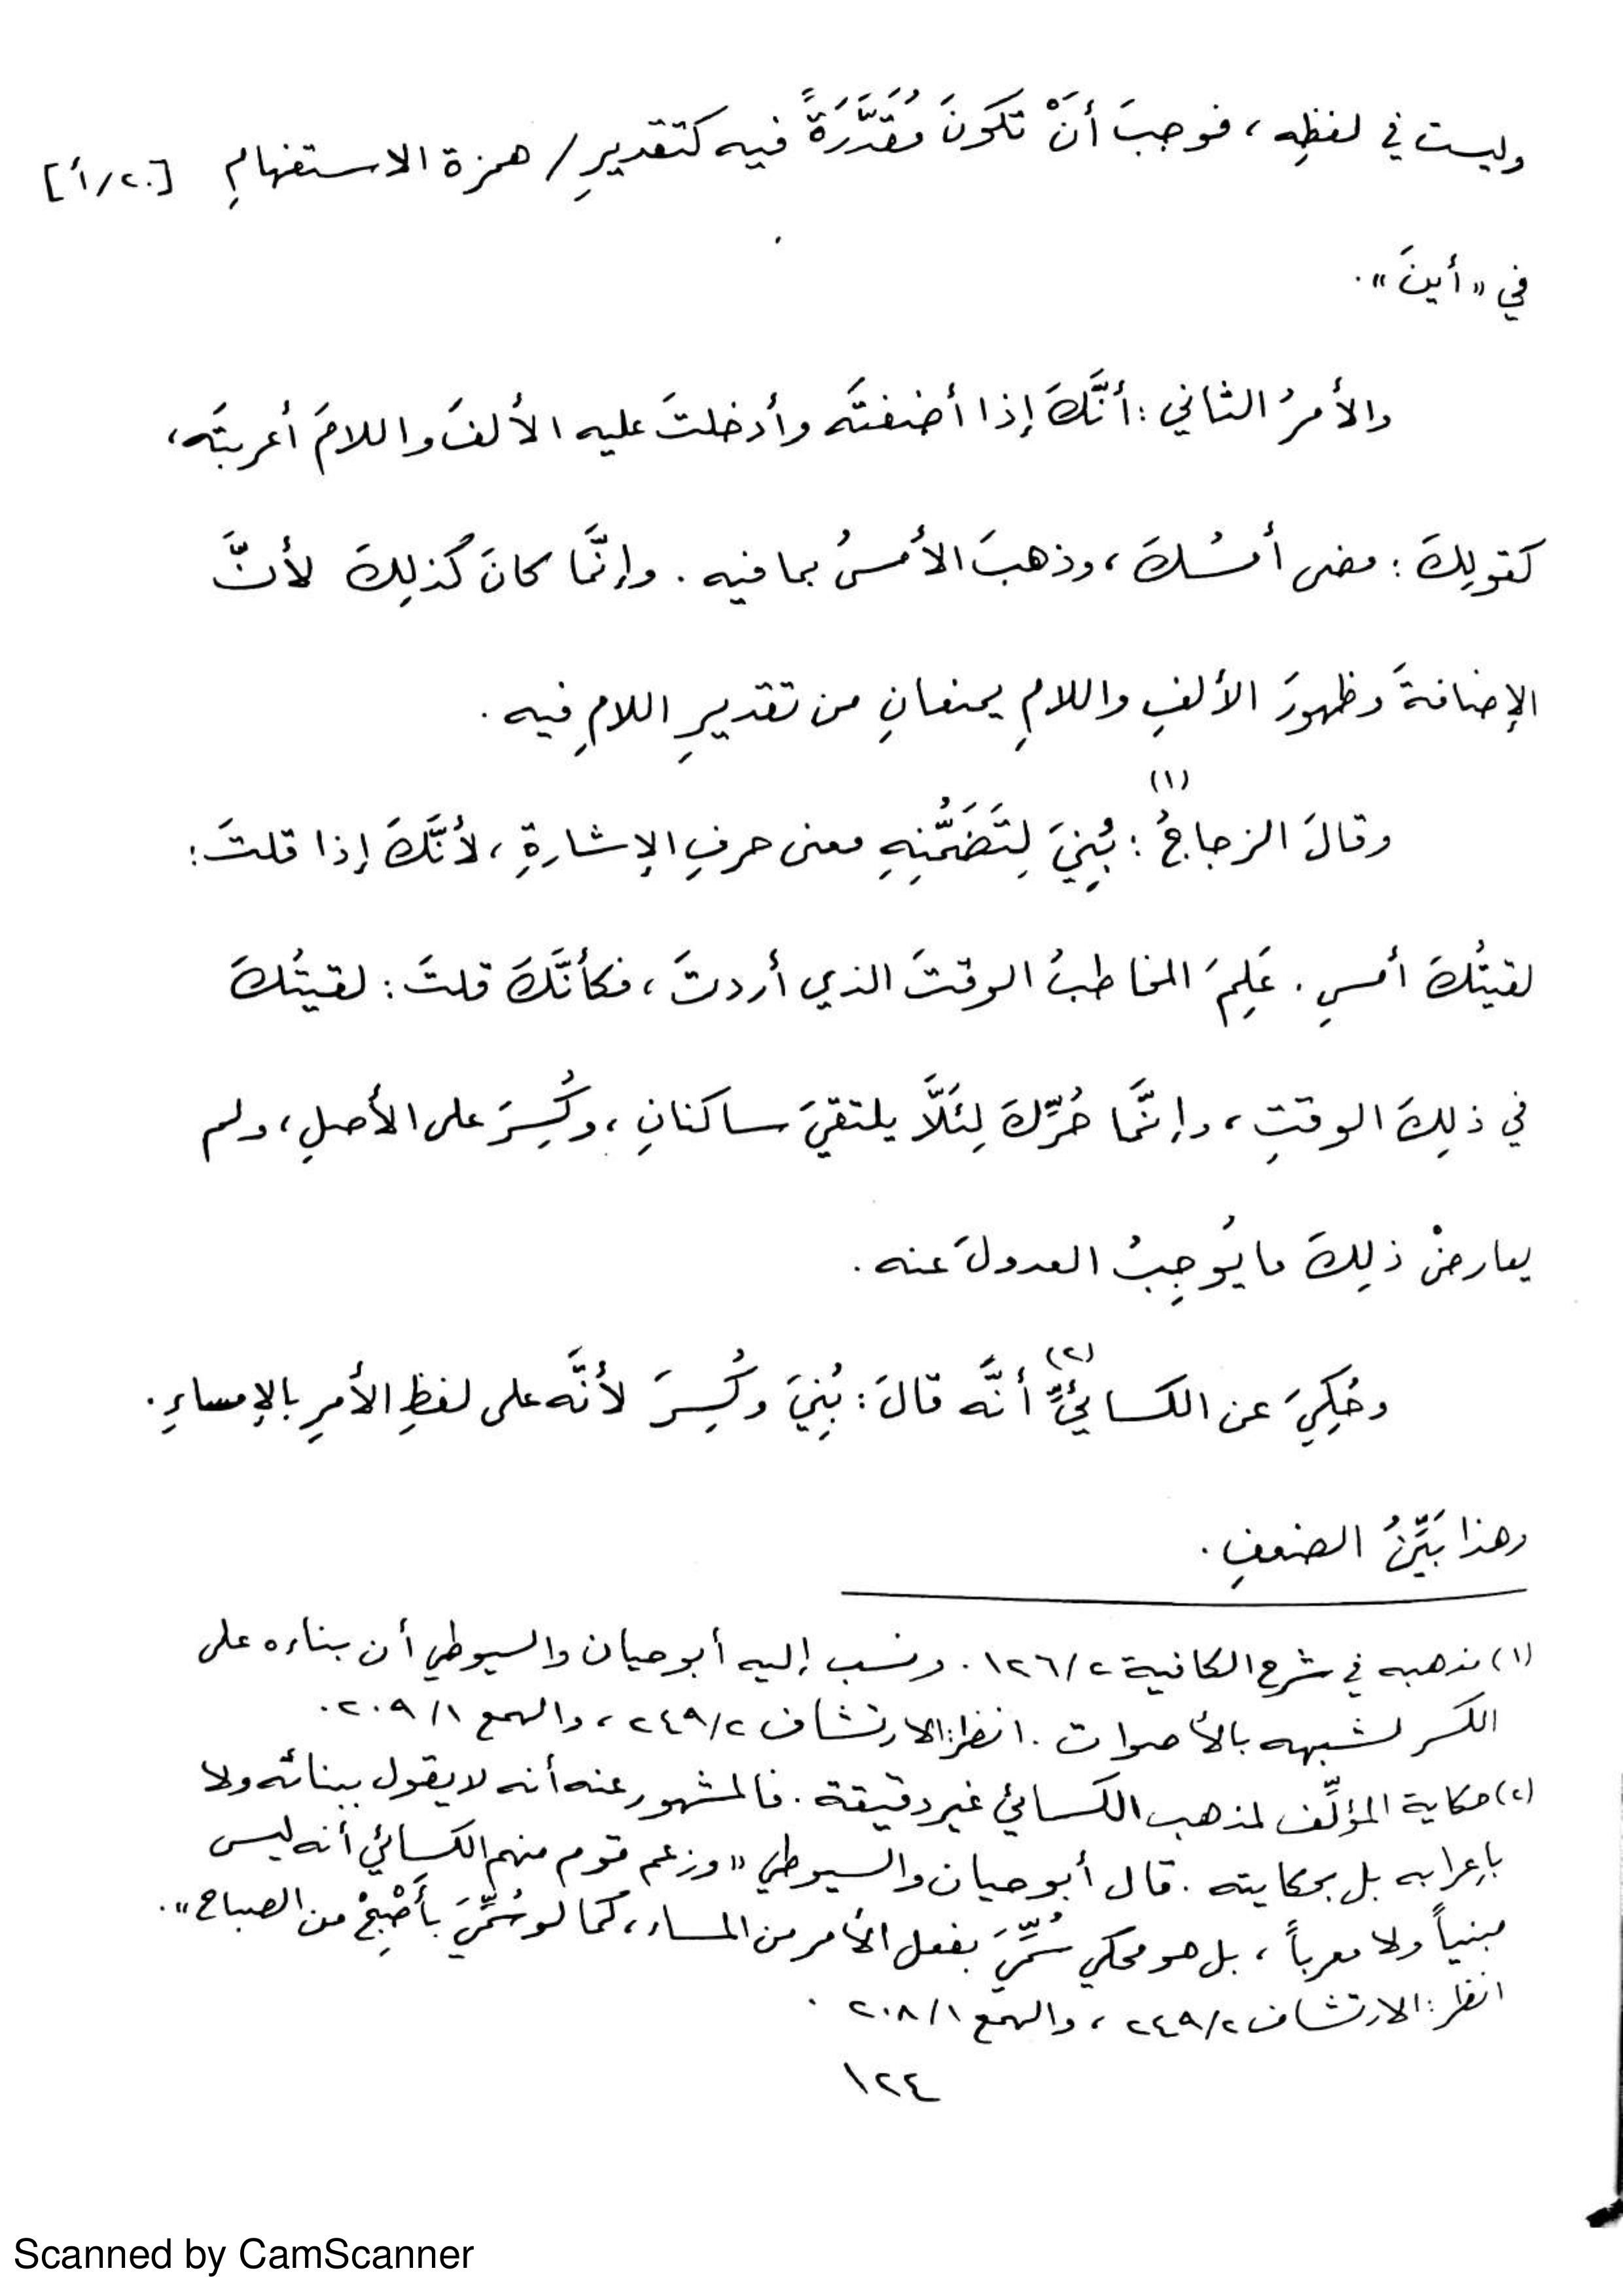 وليست في لفظِه ، فوجبَ أنَْ تكونَ مُقَدَّرَةً فيه كتقديرِ / همزة الاستفهامِ [٢٠/أ]
في « أينَ » .
والأمرُ الثاني : أنَّكَ إذا أضفتَه وأدخلتَ عليه الألفَ واللامَ أعربتَه ،
كقولِكَ : مضى أمسُكَ ، وذهبَ الأمسُ بما فيه . وإنَّما كانَ كَذلِكَ لأنَّ
الإضافةَ وظهورَ الألفِ واللامِ يمنعانِ من تقديرِ اللامِ فيه .
وقالَ الزجاجُ (١) : بُنِيَ لِتَضَمُّنِهِ معنى حرفِ الإشارةِ ، لأنَّكَ إذا قلتَ :
لقيتُكَ أمسِ . عَلِمَ المخاطبُ الوقتَ الذي أردتَ ، فكأنَّكَ قلتَ : لقيتُكَ
في ذلِكَ الوقتِ ، وإنَّما حُرِّكَ لِئَلَّا يلتقيَ ساكنانِ ، وكُسِرَ على الأصلِ ، ولم
يعارضْ ذلِكَ ما يُوجِبُ العدولَ عنه .
وحُكِيَ عن الكسائيِّ (٢) أنَّه قالَ : بُنِيَ وكُسِرَ لأنَّه على لفظِ الأمرِ بالإمساءِ .
وهذا بَيِّنُ الضعفِ .
(١) مذهبه في شرح الكافية ٢/١٢٦ . ونسب إليه أبو حيان والسيوطي أن بناءه على
الكسر لشبهه بالأصوات . انظر : الارتشاف ٢/٢٤٩ ، والهمع ١/٢٠٩ .
(٢) حكاية المؤلِّف لمذهب الكسائي غير دقيقة . فالمشهور عنه أنه لا يقول ببنائه ولا
بإعرابه بل بحكايته . قال أبو حيان والسيوطي « وزعم قوم منهم الكسائي أنه ليس
مبنياً ولا معرباً ، بل هو محكي سُمِّيَ بفعل الأمر من المساء ، كما لو سُمِّيَ بأَصْبِحْ من الصباح » .
انظر : الارتشاف ٢/٢٤٩ ، والهمع ١/٢٠٨ .
١٢٤
Scanned by CamScanner